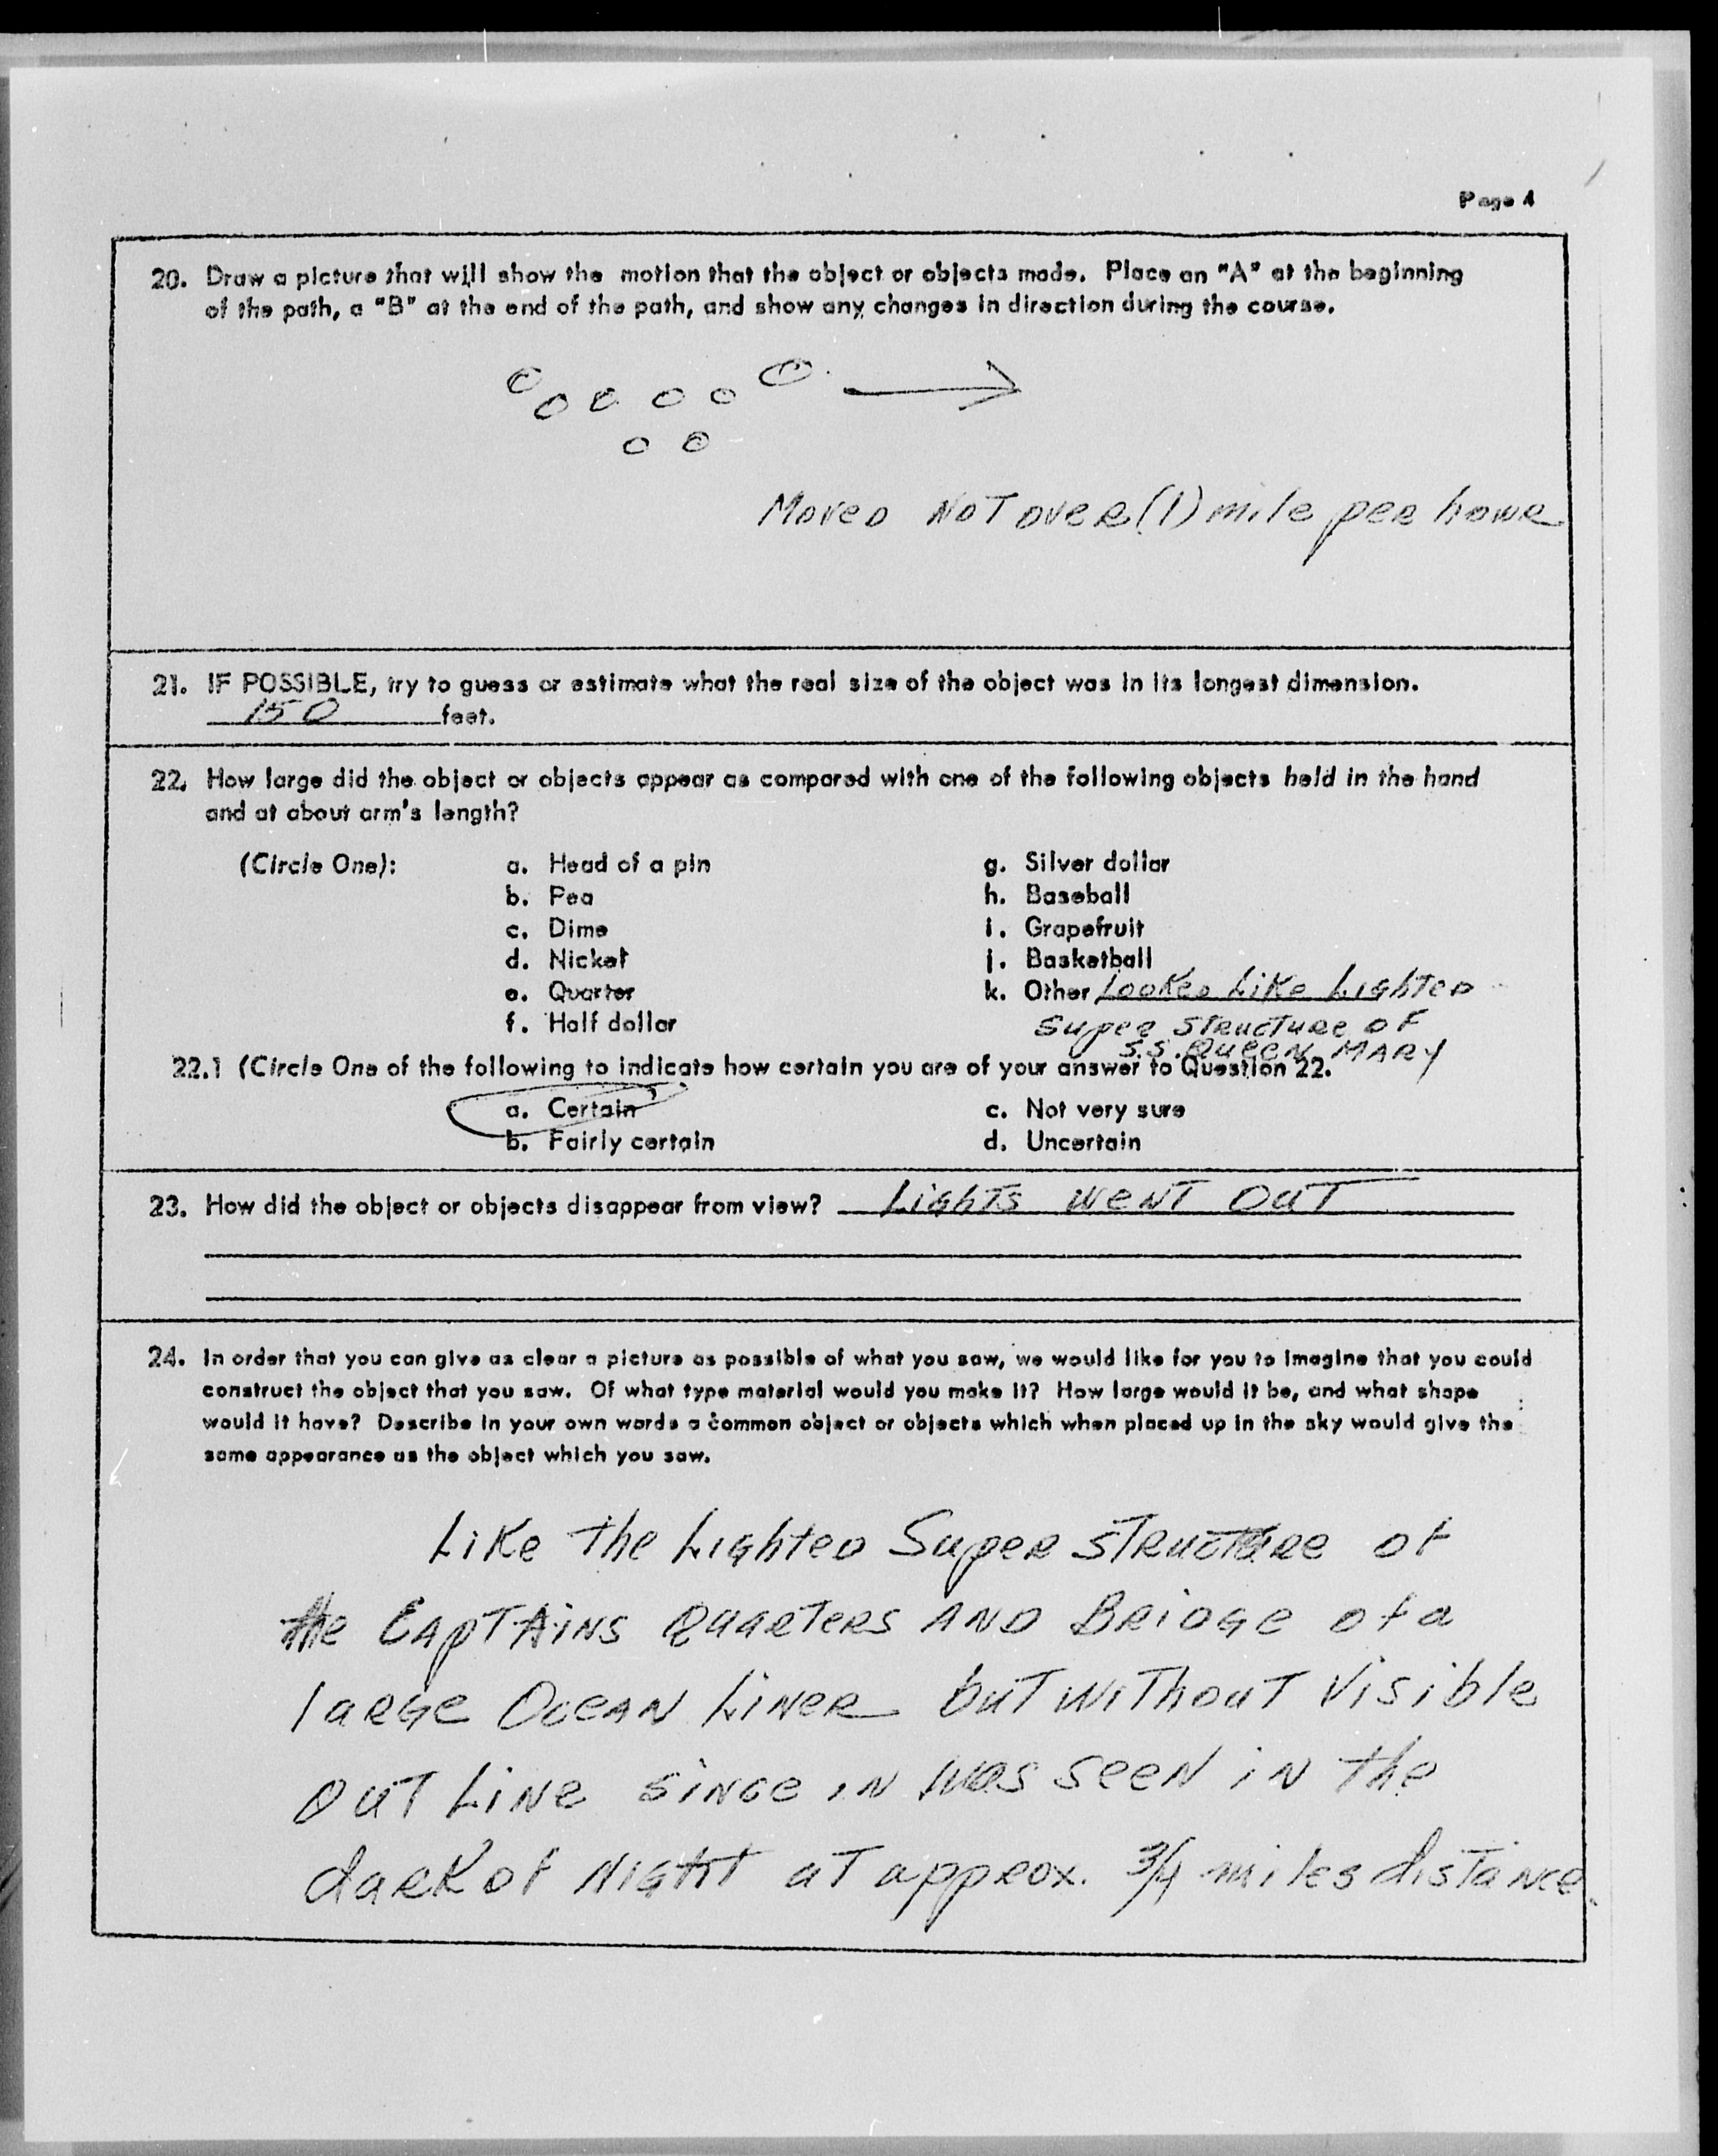 Page 4
20. Draw a picture that will show the motion that the object or objects made. Place an "A" at the beginning
of the path, a "B" at the end of the path, and show any changes in direction during the course.
Moved Not over (1) mile per houre
21. IF POSSIBLE, try to guess or estimate what the real size of the object was in its longest dimension.
150 feet.
22. How large did the object or objects appear as compared with one of the following objects held in the hand
and at about arm's length?
(Circle One): a. Head of a pin g. Silver dollar
b. Pea h. Baseball
c. Dime i. Grapefruit
d. Nickel j. Basketball
e. Quarter k. Other Looked Like Lighted
f. Half dollar Super Structure of
S.S. Queen Mary
22.1 (Circle One of the following to indicate how certain you are of your answer to Question 22.
a. Certain c. Not very sure
b. Fairly certain d. Uncertain
23. How did the object or objects disappear from view? Lights went out
24. In order that you can give as clear a picture as possible of what you saw, we would like for you to imagine that you could
construct the object that you saw. Of what type material would you make it? How large would it be, and what shape
would it have? Describe in your own words a common object or objects which when placed up in the sky would give the
same appearance as the object which you saw.
Like the Lighted Super Structure of
the Captains Quarters and Bridge of a
large Ocean Liner but without Visible
out Line since in was seen in the
dark of Night at approx. 3/4 miles distance.